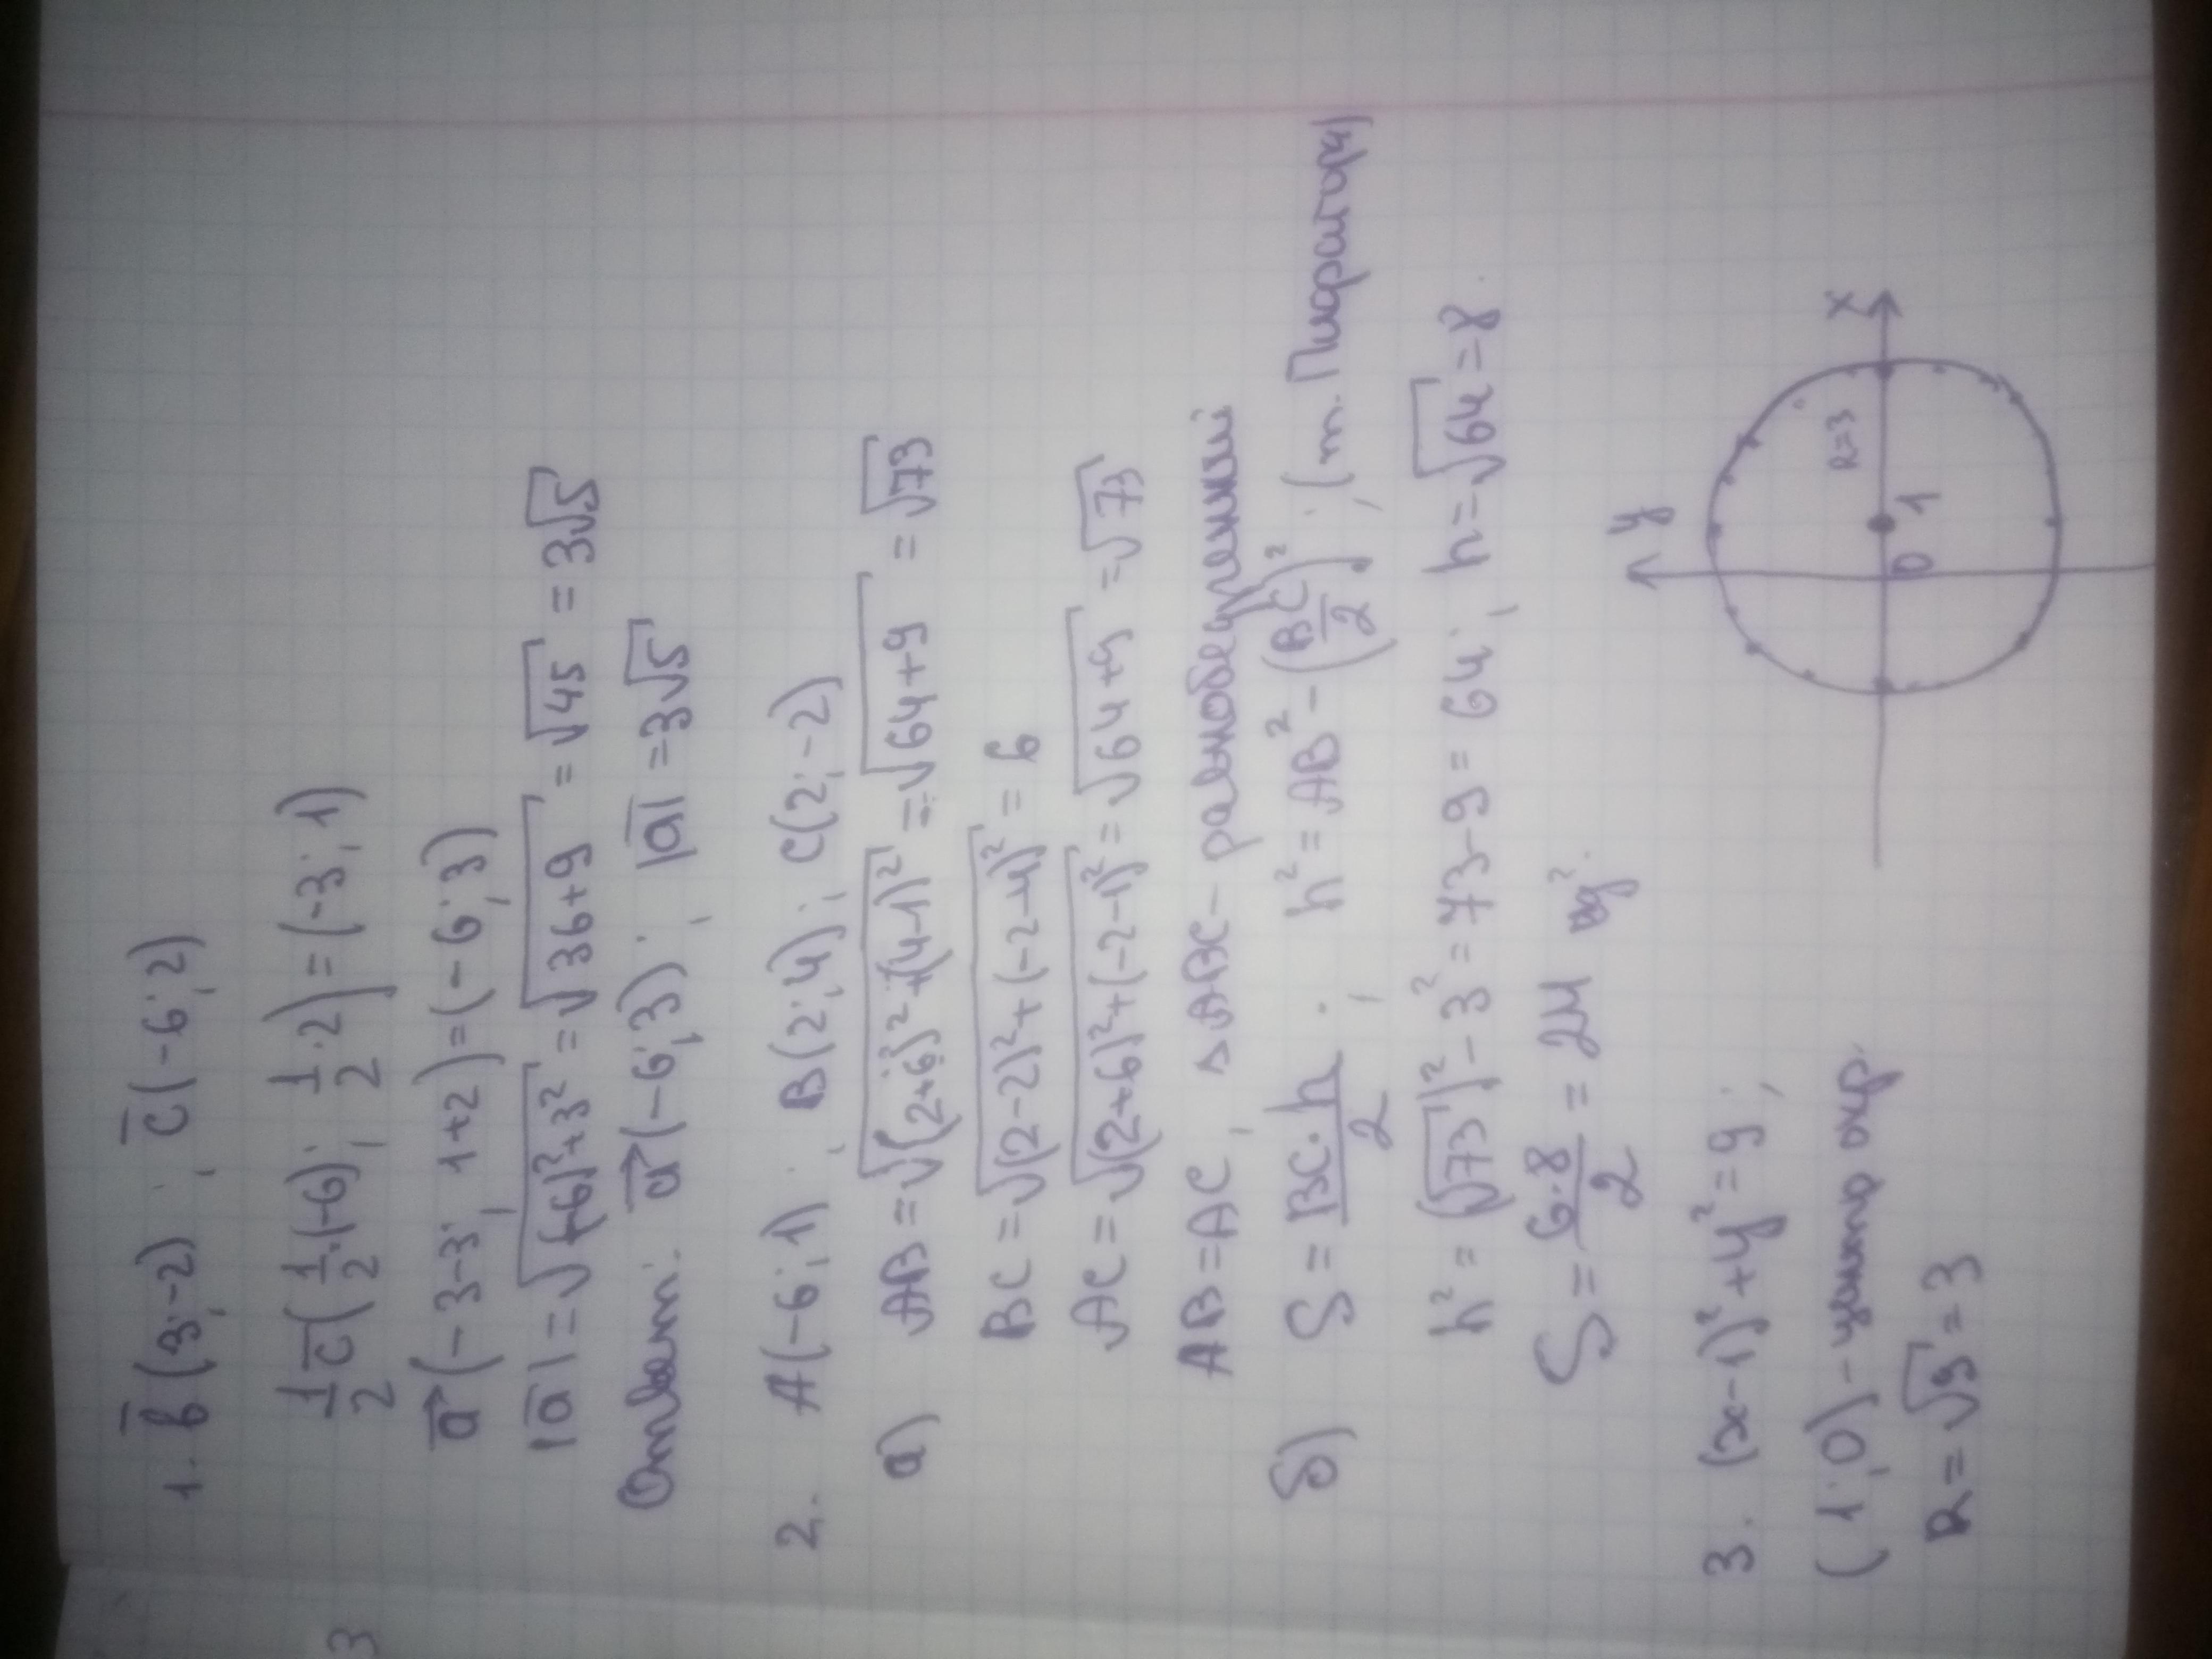 1. b̅(3;-2) ; c̅(-6;2)
1/2 c̅(1/2·(-6); 1/2·2) = (-3;1)
a⃗(-3-3; 1+2)=(-6;3)
|a̅|=√((-6)²+3²) = √(36+9) = √45 = 3√5
Ответ: a⃗(-6;3) ; |a̅|=3√5
2. A(-6;1) ; B(2;4) ; C(2;-2)
а) AB=√((2+6)²+(4-1)²) = √(64+9) = √73
BC=√((2-2)²+(-2-4)²) = 6
AC=√((2+6)²+(-2-1)²) = √(64+9) = √73
AB=AC, △ABC- равнобедренный
б) S = BC·h/2 ; h²=AB²-(BC/2)² ; (т. Пифагора)
h²=(√73)²-3²=73-9=64; h=√64=8.
S=6·8/2=24
3. (x-1)²+y²=9;
(1;0)-центр окр.
R=√9=3
y
x
R=3
0 1
3